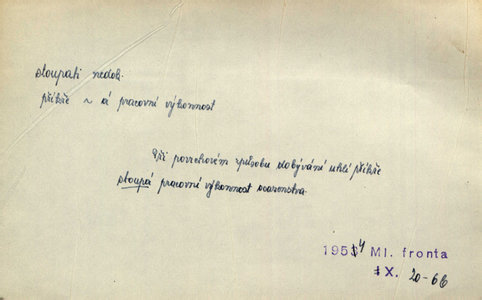 stoupati nedok.
příkře ~ á pracovní výkonnost
Při povrchovém způsobu dobývání uhlí příkře
stoupá pracovní výkonnost
1954 Ml. fronta
IX. 20-6b